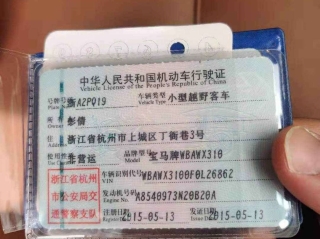 中华人民共和国机动车行驶证
Vehicle License of the People's Republic of China
号牌号码 浙A2PQ19 车辆类型 小型越野客车
Plate No. Vehicle Type
彭倩
浙江省杭州市上城区丁衙巷3号
非营运 品牌型号 宝马牌WBAWX310
浙江省杭州市公安局交通警察支队
车辆识别代号 WBAWX3100F0L26862
VIN
发动机号码 A8540973N20B20A
Engine No.
注册日期 2015-05-13 发证日期 2015-05-13